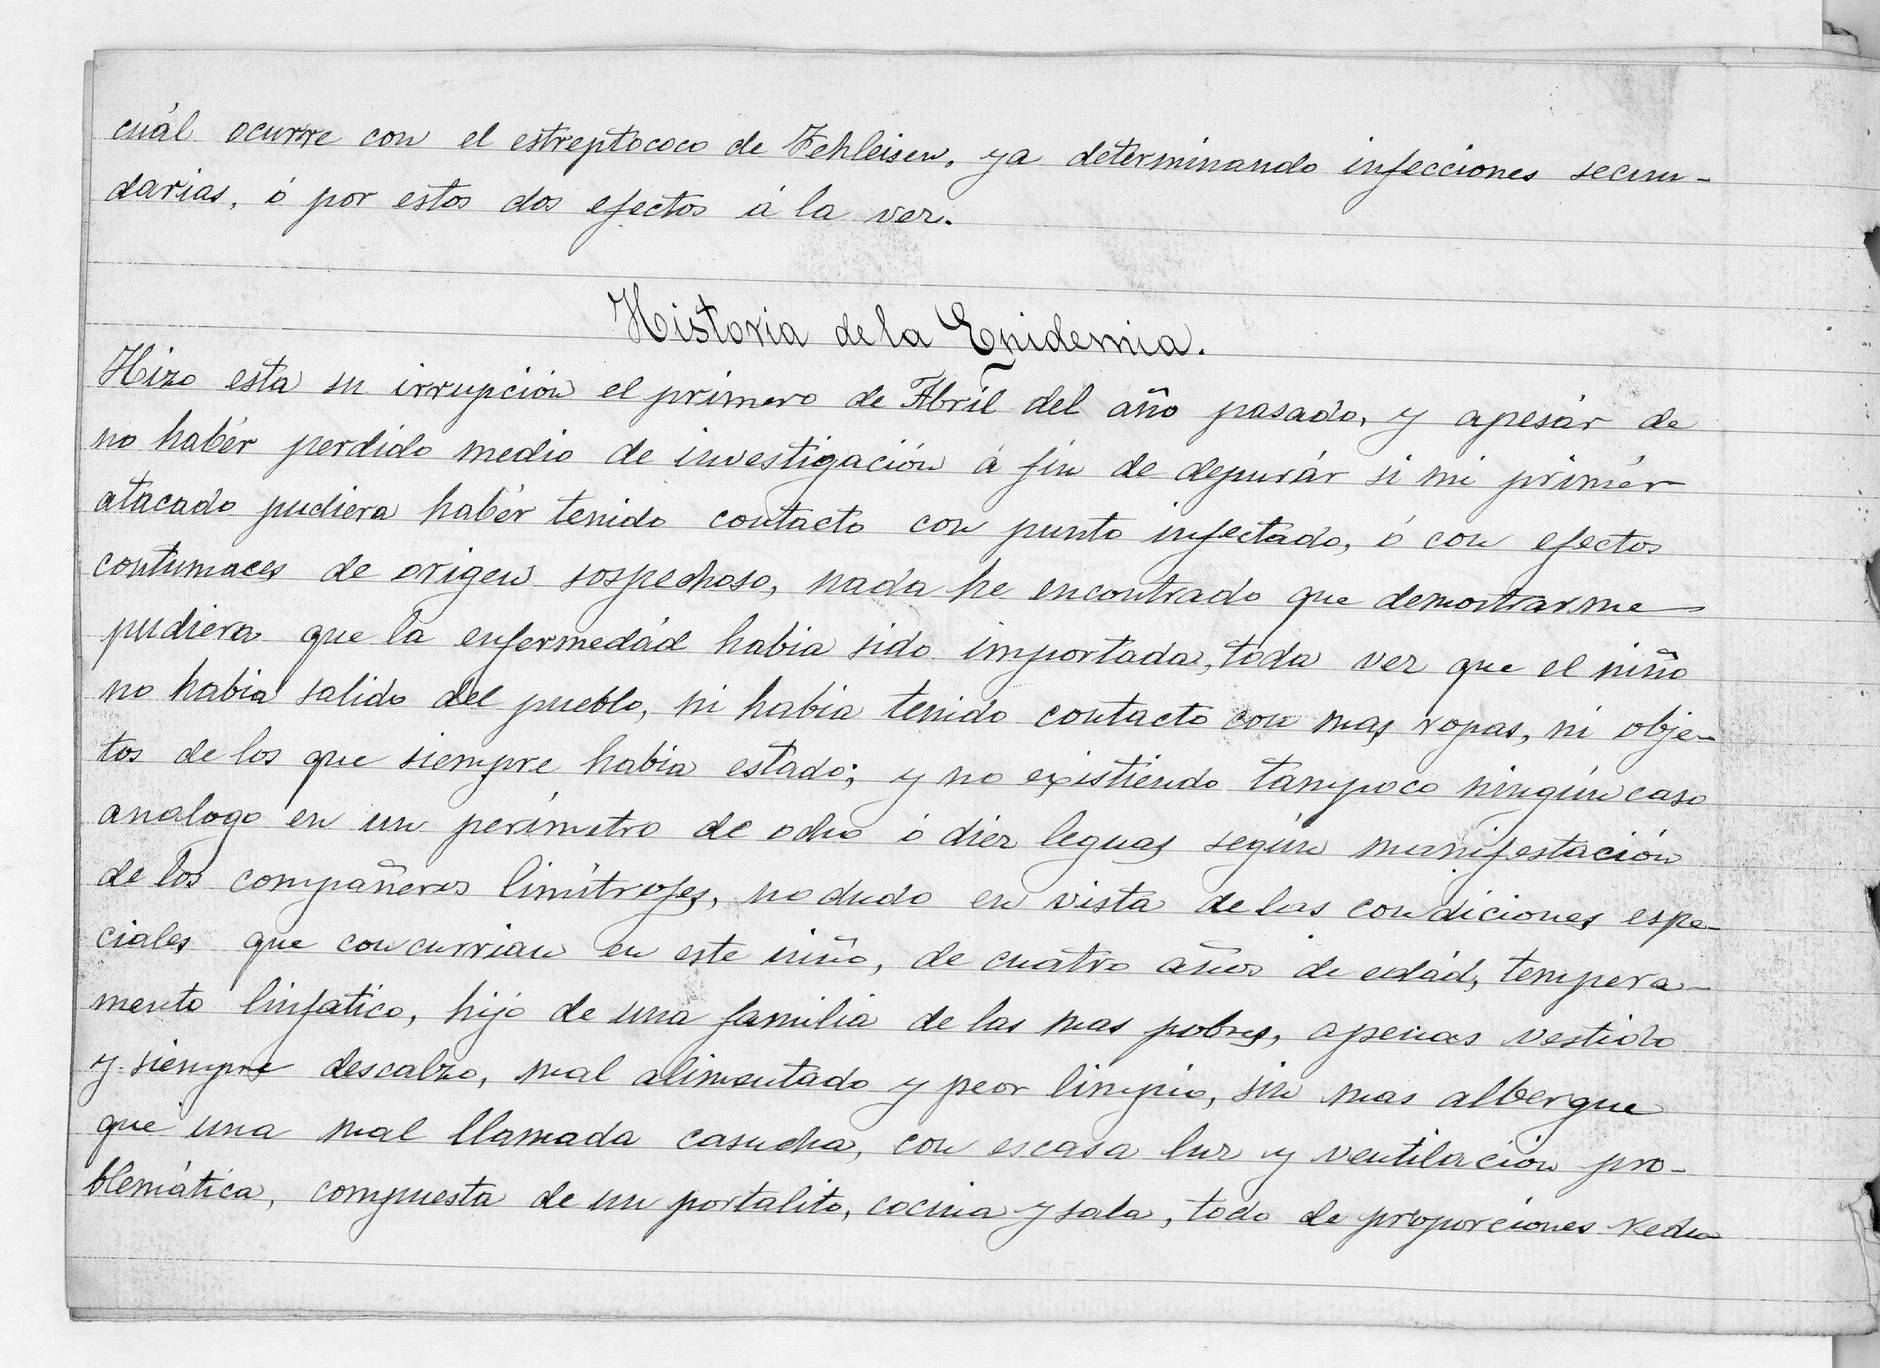 cuál ocurre con el estreptococo de Fehleisen, ya determinando infecciones secun-
darias, ó por estos dos efectos á la vez.
Historia de la Epidemia.
Hizo esta su irrupción el primero de Abril del año pasado, y apesár de
no habér perdido medio de investigación á fin de depurár si mi primér
atacado pudiera habér tenido contacto con punto infectado, ó con efectos
contumaces de origen sospechoso, nada he encontrado que demostrarme
pudiera que la enfermedád habia sido importada, toda vez que el niño
no habia salido del pueblo, ni habia tenido contacto con mas ropas, ni obje-
tos de los que siempre habia estado; y no existiendo tampoco ningún caso
analogo en un perímetro de ocho ó diez leguas según manifestación
de los compañeros limítrofes, no dudo en vista de las condiciones espe-
ciales que concurrian en este niño, de cuatro años de edád, tempera-
mento linfatico, hijo de una familia de las mas pobres, apenas vestido
y siempre descalzo, mal alimentado y peor limpio, sin mas albergue
que una mal llamada casucha, con escasa luz y ventilación pro-
blemática, compuesta de un portalito, cocina y sala, todo de proporciones redu